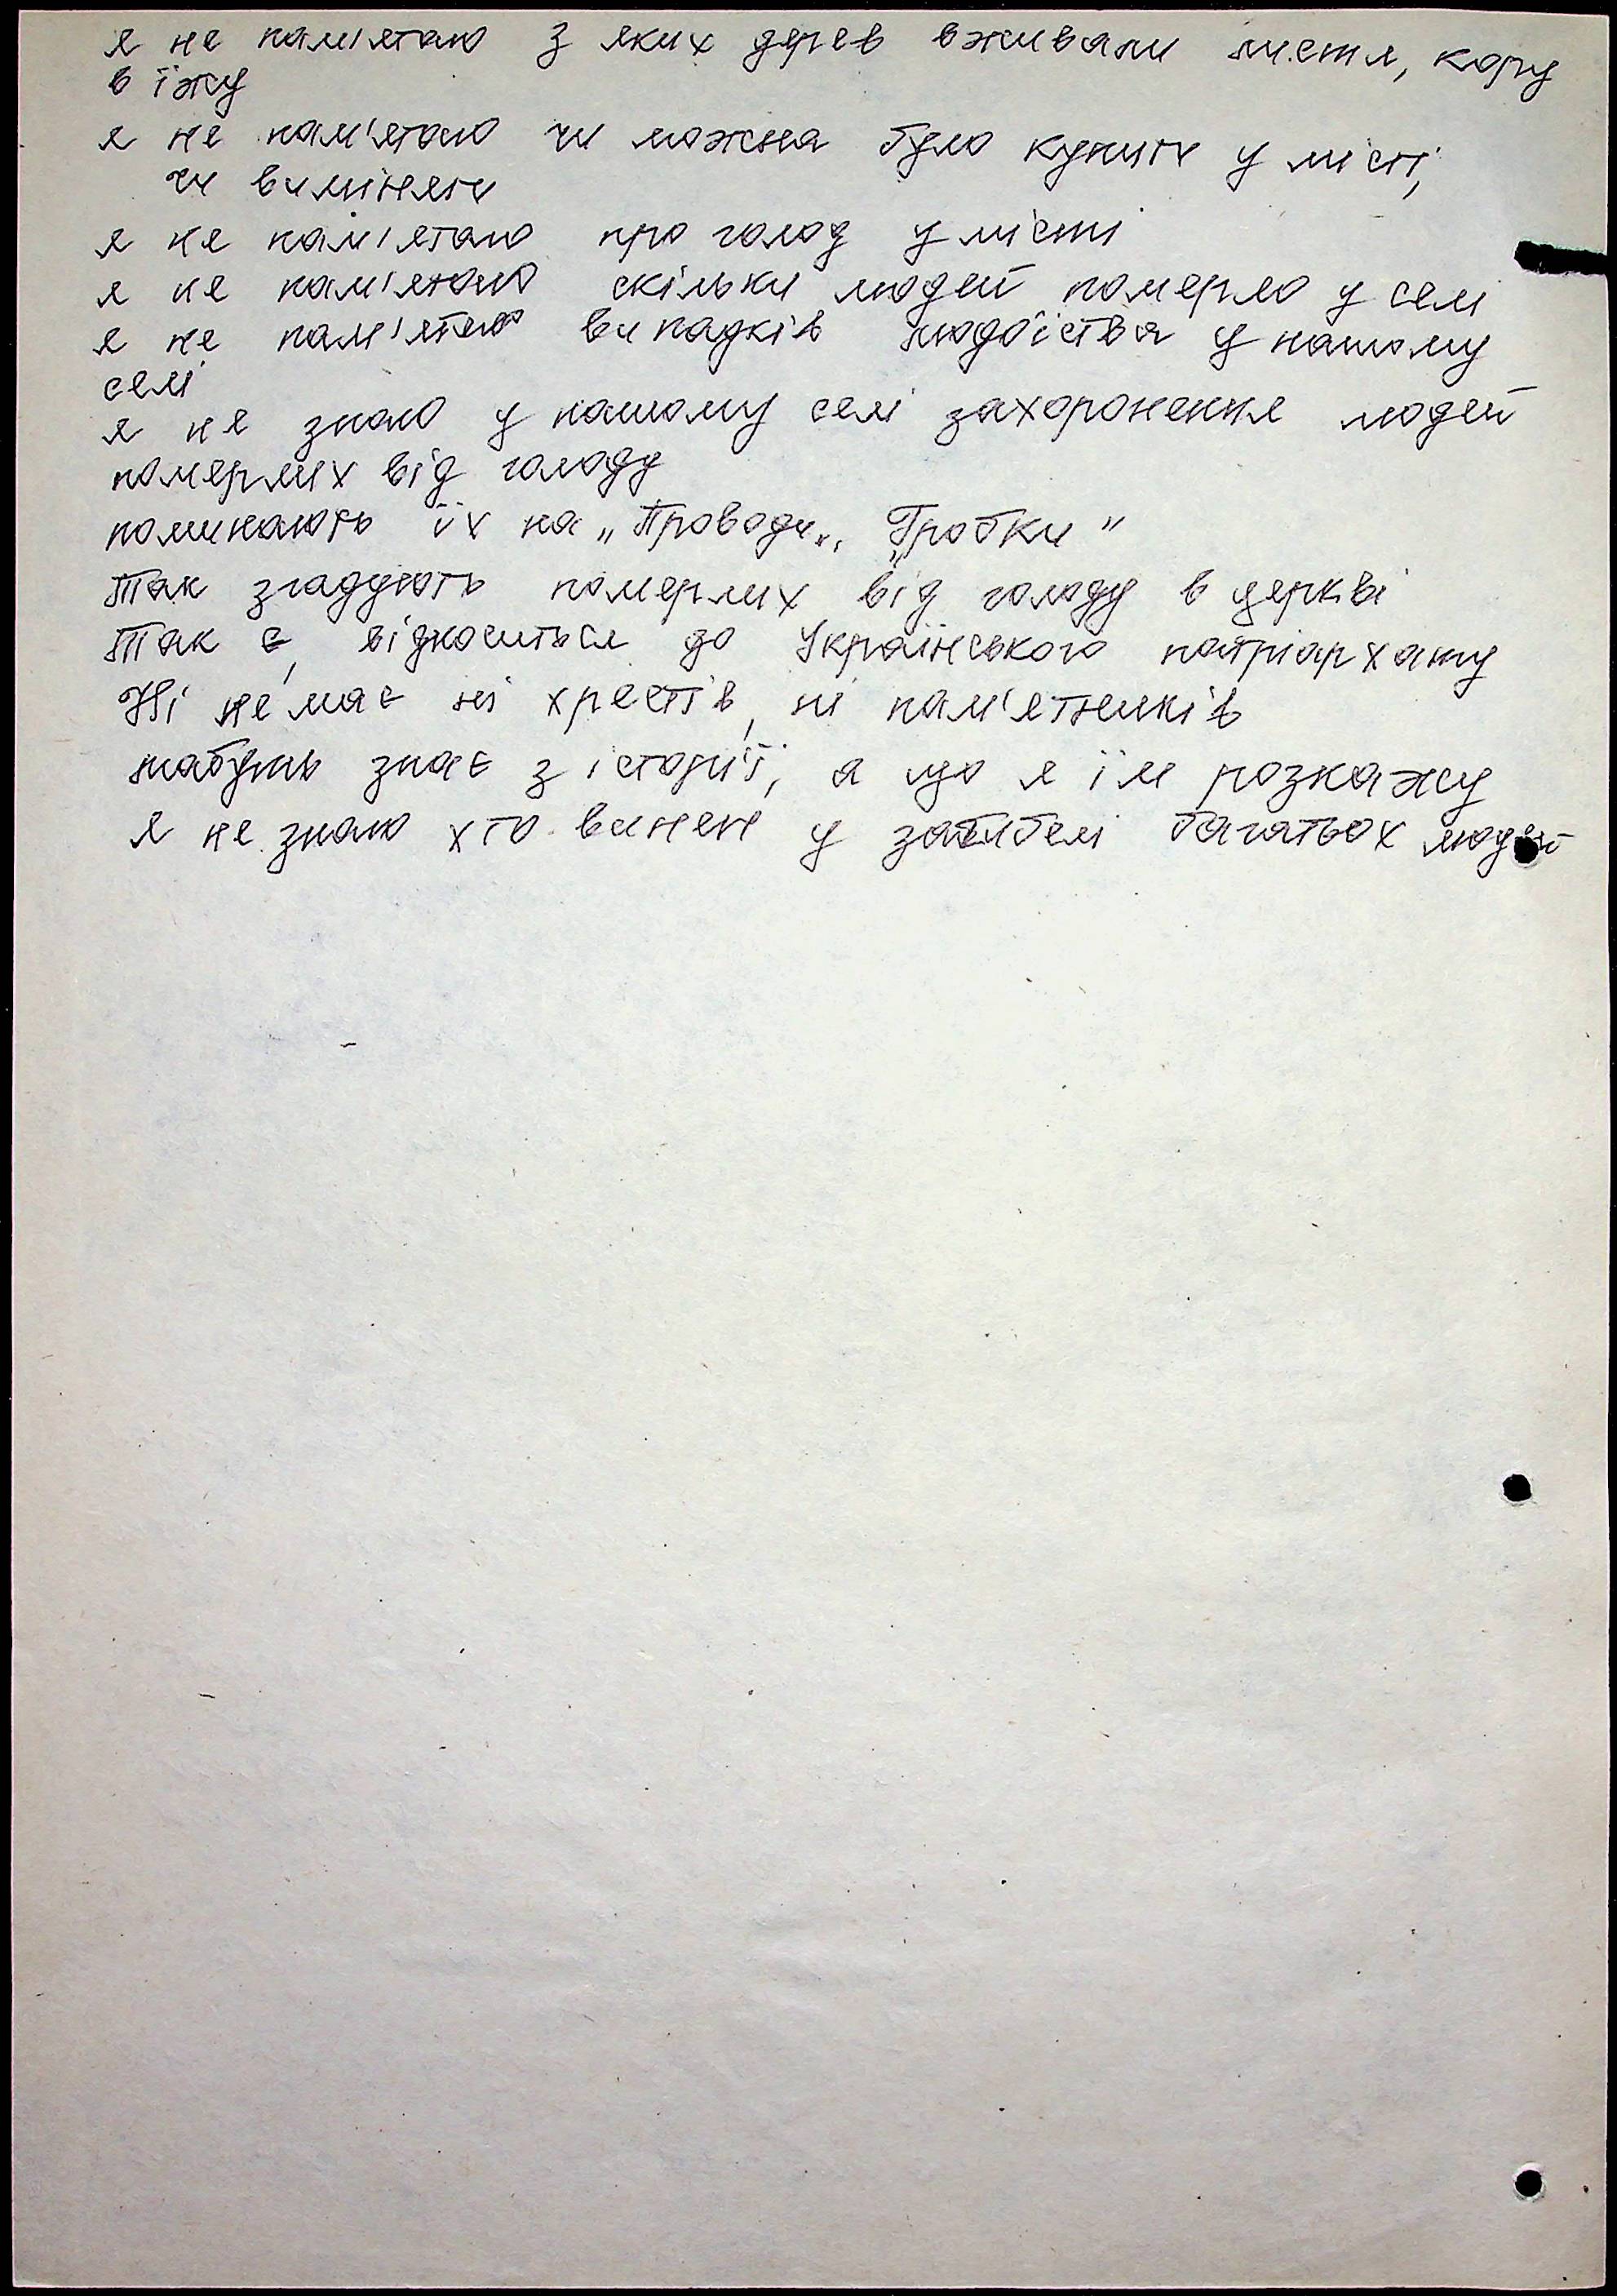 я не пам'ятаю з яких дерев вживали листя, кору
в їжу
я не пам'ятаю чи можна було купити у місті,
чи виміняти
я не пам'ятаю про голод у місті
я не пам'ятаю скільки людей померло у селі
я не пам'ятаю випадків людоїства у нашому
селі
я не знаю у нашому селі захоронення людей
померлих від голоду
поминають їх на „Проводи„, „Гробки"
Так згадують померлих від голоду в церкві
Так є, відноситься до Українського патріархату
Ні немає ні хрестів, ні пам'ятників
мабуть знає з історії, а що я їм розкажу
я не знаю хто винен у загибелі багатьох людей